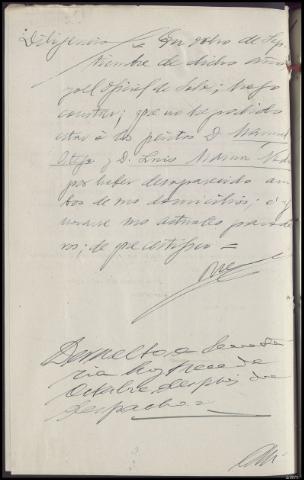 Diligencia = En ocho de Sep-
tiembre de dicho año
yo el Oficial de Sala; hago
constar; que no he podido
citar á los peritos D. Manuel
y D. Luis Marin
por haber desaparecido am-
bos de sus domicilios; é ig-
norarse sus actuales parade-
ros; de que certifico =
Devuelto a Secreta-
ria hoy trece de
Octubre, después de
despachar